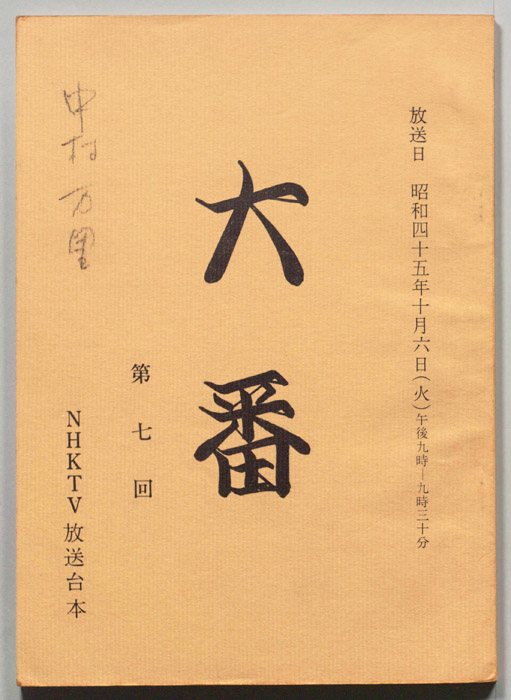 放送日　昭和四十五年十月六日(火)午後九時―九時三十分
大番
第七回
NHKTV放送台本
中村万里